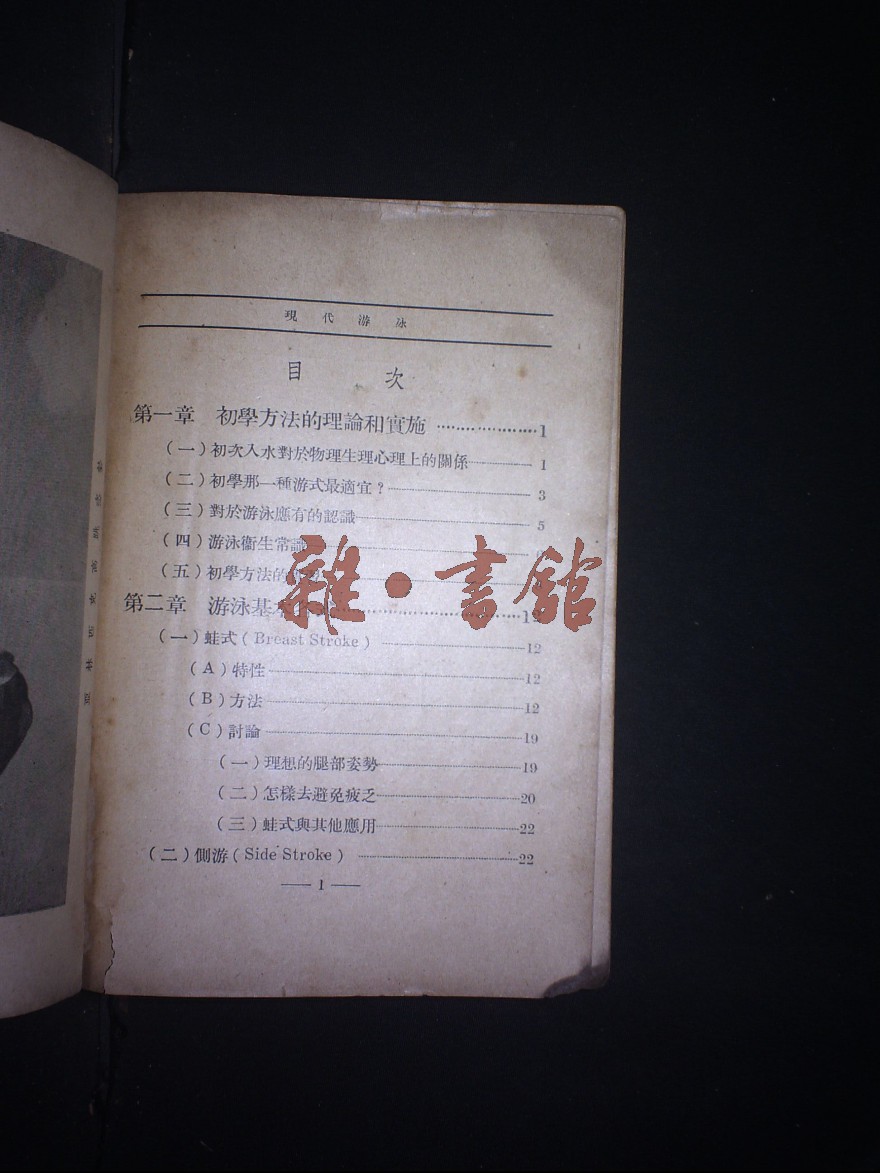 現代游泳
目次
第一章 初學方法的理論和實施 1
(一)初次入水對於物理生理心理上的關係 1
(二)初學那一種游式最適宜? 3
(三)對於游泳應有的認識 5
(四)游泳衞生常識
(五)初學方法的
第二章 游泳基本 12
(一)蛙式(Breast Stroke) 12
(A)特性 12
(B)方法 12
(C)討論 19
(一)理想的腿部姿勢 19
(二)怎樣去避免疲乏 20
(三)蛙式與其他應用 22
(二)側游(Side Stroke) 22
— 1 —
雜·書館